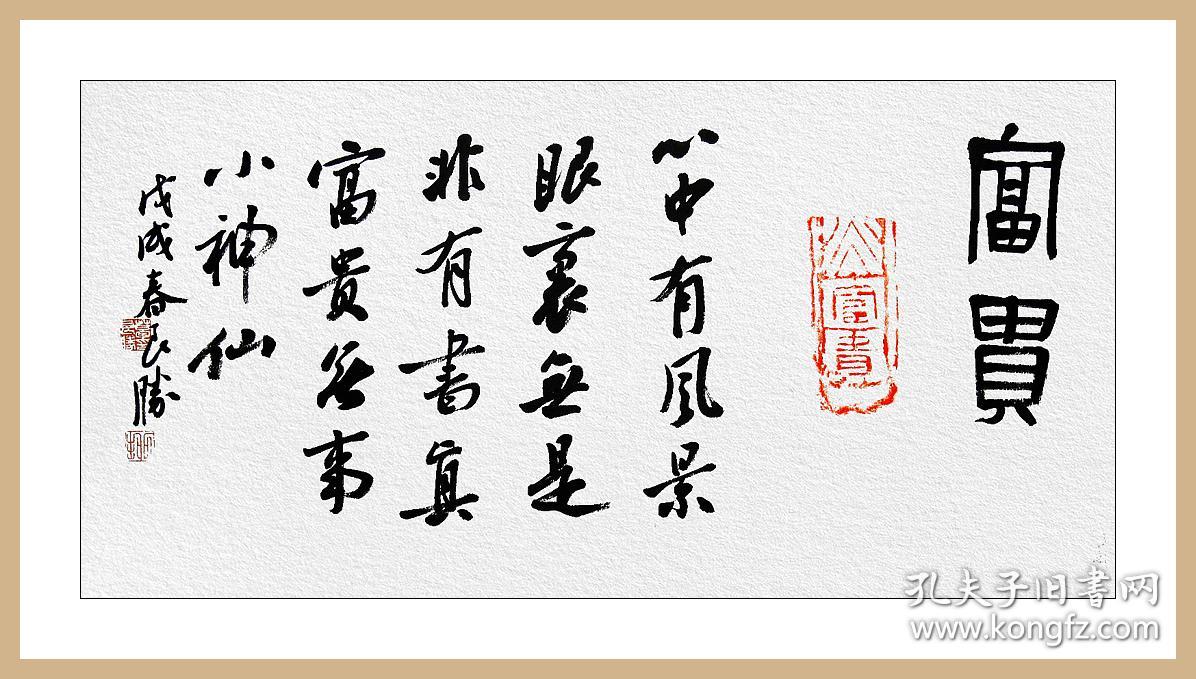 富貴
心中有风景
眼裏無是
非有書真
富贵無事
小神仙
戊戌春民勝
孔夫子旧书网
www.kongfz.com